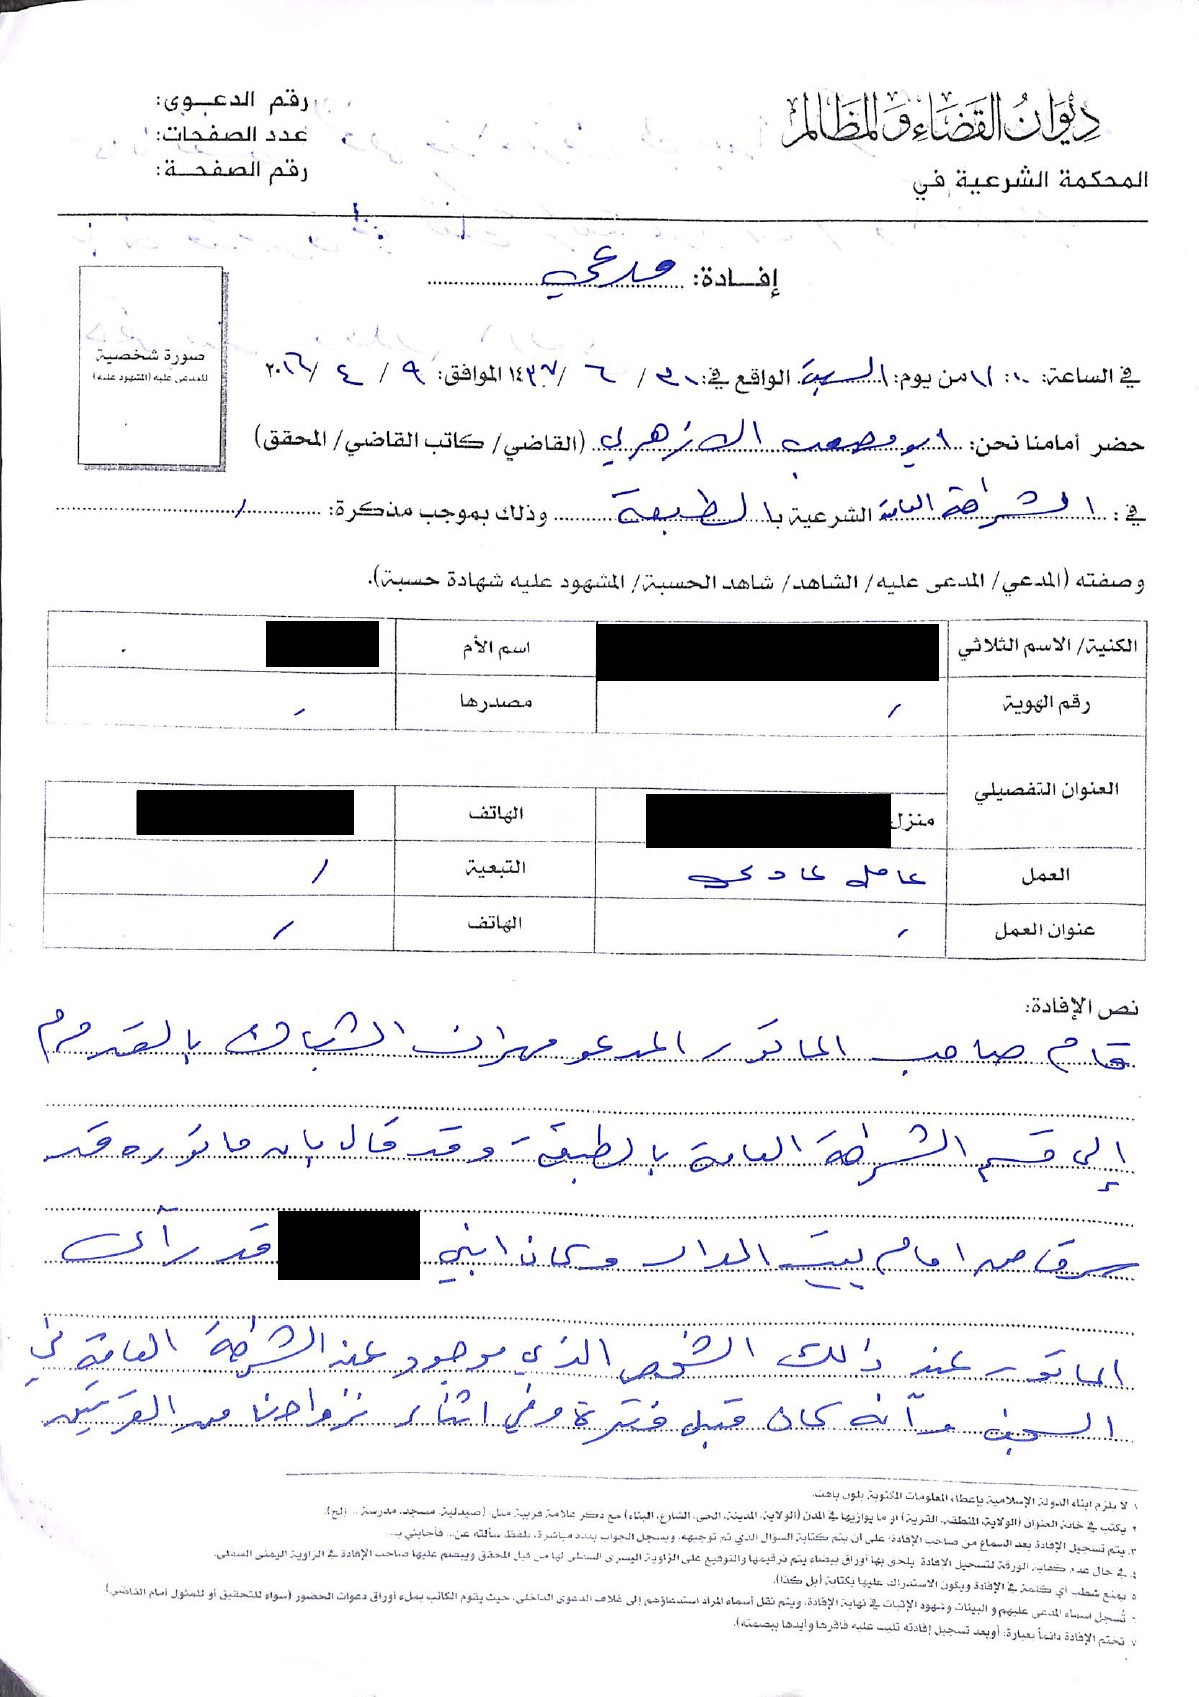 ديوان القضاء والمظالم
المحكمة الشرعية في
رقم الدعـوى:
عدد الصفحات:
رقم الصفحـة:
إفـادة: مدعي
صورة شخصية
للمدعى عليه (المشهود عليه)
في الساعة: ١٠ : ١١ من يوم: السبت الواقع في: / ٦ /١٤٣٧ الموافق: ٩ / ٤ /٢٠١٦
حضر أمامنا نحن: ابو مصعب الازهري (القاضي/ كاتب القاضي/ المحقق)
في: الشرطة العامة الشرعية با لطبقة وذلك بموجب مذكرة: /
وصفته (المدعي/ المدعى عليه/ الشاهد/ شاهد الحسبة/ المشهود عليه شهادة حسبة).
الكنية/ الاسم الثلاثي
اسم الأم
رقم الهوية /
مصدرها /
العنوان التفصيلي
منزل
الهاتف
العمل عامل عادي
التبعية /
عنوان العمل /
الهاتف /
نص الإفادة:
قام صاحب الماتور المدعو مهران الشباك بالقدوم
إلى قسم الشرطة العامة بالطبقة وقد قال بان ماتوره قد
سرق من امام بيت الدار وكان ابني قد رآى
الماتور عند ذلك الشخص الذي موجود عند الشرطة العامة في
السجن وآنه كان قبل فترة وفي اثناء نزواحنا من القريتين
١. لا يلزم ابناء الدولة الإسلامية بإعطاء المعلومات المكتوبة بلون باهت.
٢. يكتب في خانة العنوان (الولاية، المنطقة، القرية) او ما يوازيها في المدن (الولاية، المدينة، الحي، الشارع، البناء) مع ذكر علامة قريبة مثل (صيدلية، مسجد، مدرسة ... إلخ).
٣. يتم تسجيل الإفادة بعد السماع من صاحب الإفادة، على ان يتم كتابة السؤال الذي تم توجيهه، ويسجل الجواب بعده مباشرة، بلفظ سألته عن... فأجابني بـ...
٤. في حال عدم كفاية الورقة لتسجيل الإفادة يلحق بها أوراق بيضاء يتم ترقيمها والتوقيع على الزاوية اليسرى السفلى لها من قبل المحقق ويبصم عليها صاحب الإفادة في الزاوية اليمنى السفلى.
٥. يمنع شطب أي كلمة في الإفادة ويكون الاستدراك عليها بكتابة (بل كذا).
٦. تُسجل اسماء المدعى عليهم و البينات وشهود الإثبات في نهاية الإفادة، ويتم نقل أسماء المراد استدعاؤهم إلى غلاف الدعوى الداخلي، حيث يقوم الكاتب بملء أوراق دعوات الحضور (سواء للتحقيق أو للمثول أمام القاضي).
٧. تختم الإفادة دائماً بعبارة: (وبعد تسجيل إفادته تليت عليه فأقرها وأيدها ببصمته).